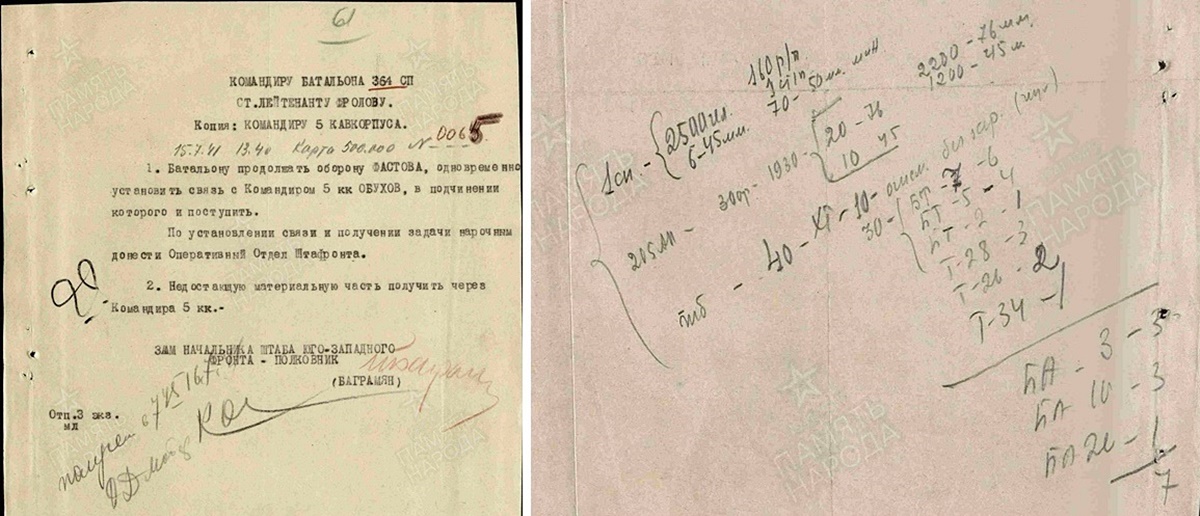 61
КОМАНДИРУ БАТАЛЬОНА 364 СП
СТ.ЛЕЙТЕНАНТУ ФРОЛОВУ.
Копия: КОМАНДИРУ 5 КАВКОРПУСА.
15.7.41 13.40 Карта 500.000 № 0065
1. Батальону продолжать оборону ФАСТОВА, одновременно
установить связь с Командиром 5 кк ОБУХОВ, в подчинении
которого и поступить.
По установлении связи и получении задачи нарочным
донести Оперативный Отдел Штафронта.
2. Недостающую материальную часть получить через
Командира 5 кк.-
ЗАМ НАЧАЛЬНИКА ШТАБА ЮГО-ЗАПАДНОГО
ФРОНТА - ПОЛКОВНИК
(БАГРАМЯН)
Отп.3 экз.
мл
ПАМЯТЬ НАРОДА
160 р/п
70 - 50 мм. мин
2200 - 76 мм
1200 - 45 м
1 сп. - 2500 чл.
6-45мм.
1930 - 20 - 76
10 45
40 - XT - 10 -
30 - БТ-7 - 6
БТ-5 - 4
БТ-2 - 1
Т-28 - 3
Т-26 - 2
Т-34 - 1
БА - 3 - 3
БА 10 - 3
БА 20 - 1
7